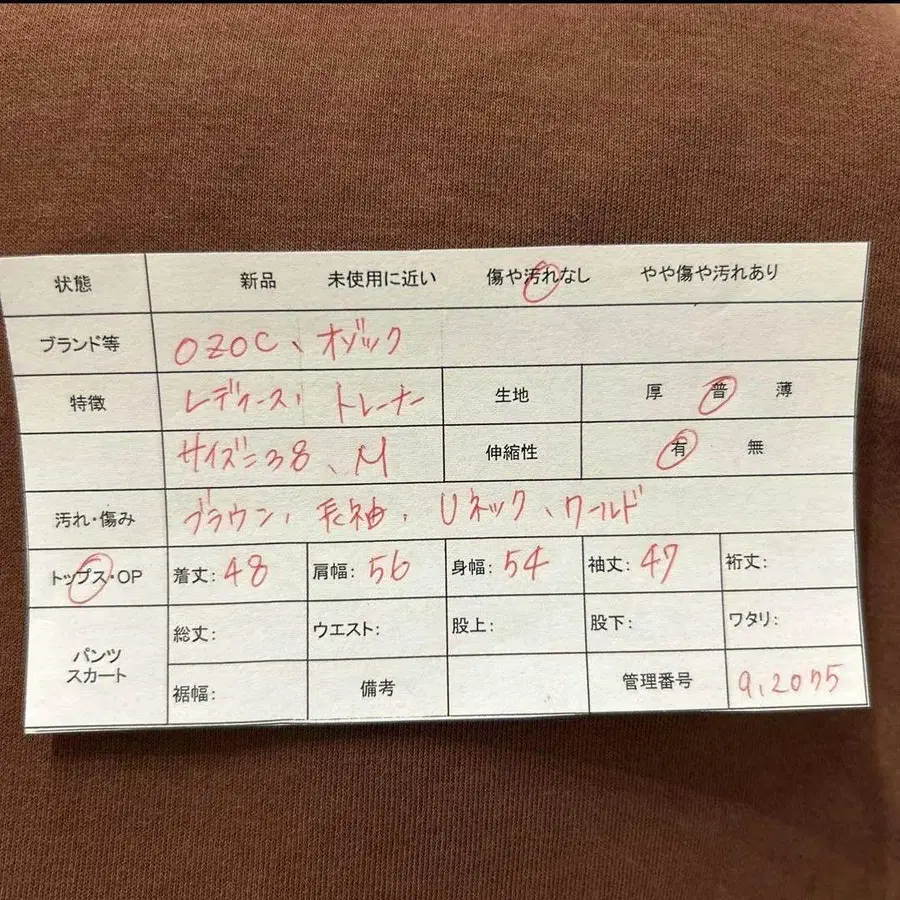 状態 新品 未使用に近い 傷や汚れなし やや傷や汚れあり
ブランド等 OZOC、オゾック
特徴 レディース、トレーナー 生地 厚 普 薄
サイズ=38、M 伸縮性 有 無
汚れ・傷み ブラウン、長袖、Uネック、ワールド
トップス・OP 着丈:48 肩幅:56 身幅:54 袖丈:47 裄丈:
パンツ スカート 総丈: ウエスト: 股上: 股下: ワタリ:
裾幅: 備考 管理番号 9,2075